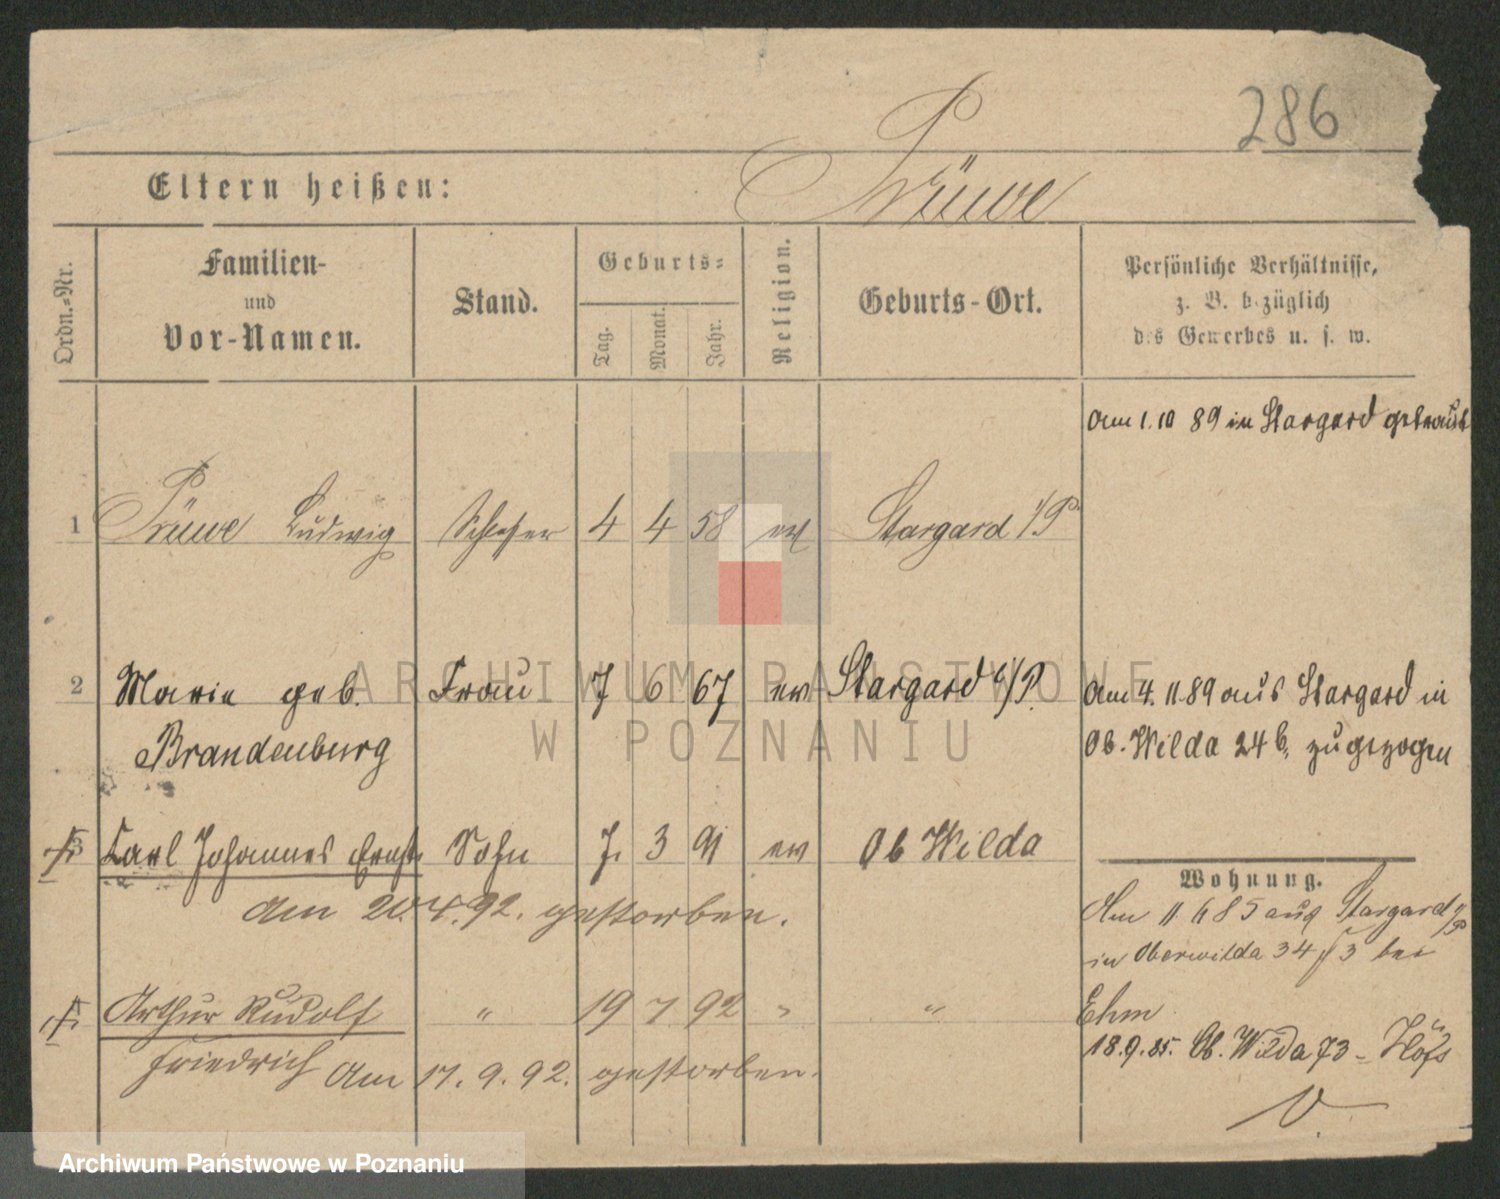 286
Eltern heißen: Prüwe
Ordn.-Nr.
Familien-
und
Vor-Namen.
Stand.
Geburts-
Tag.
Monat.
Jahr.
Religion.
Geburts-Ort.
Persönliche Verhältnisse,
z. B. bezüglich
des Gewerbes u. s. w.
Am 1.10 89 in Stargard getraut
1 Prüwe Ludwig Schlosser 4 4 58 ev Stargard i/P
2 Marie geb. Frau 7 6 67 ev Stargard i/P. Am 4.11.89 aus Stargard in
Brandenburg Ob. Wilda 24b, zugezogen
3 Carl Johannes Ernst Sohn 7. 3 91 ev Ob Wilda
Am 20.4.92. gestorben.
Wohnung.
Am 11 6 85 aus Stargard i/P
in Oberwilda 34 bei
Ehm
18.9.85. Ob. Wilda 73 - Höfs
Arthur Rudolf " 19 7 92 " "
Friedrich Am 17. 9. 92. gestorben.
ARCHIWUM PAŃSTWOWE
W POZNANIU
Archiwum Państwowe w Poznaniu